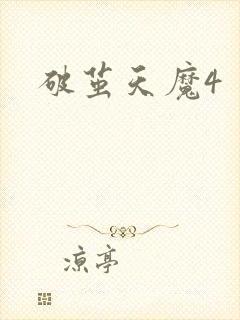 破茧天魔4
凉亭